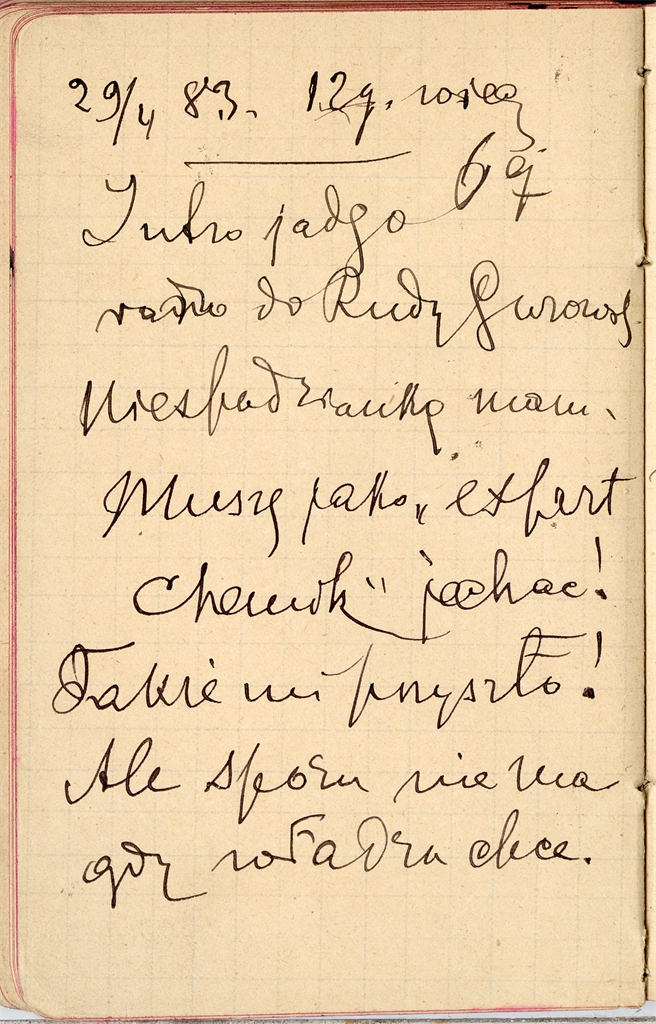 29/4 83. 12g. wiecz
6g
Jutro jadę o
rano do Rudy Gurowsk.
Niespodziankę mam.
Muszę jako „expert
chemik" jechać!
Takie mi przyszło!
Ale sporu nie ma
gdy władza chce.